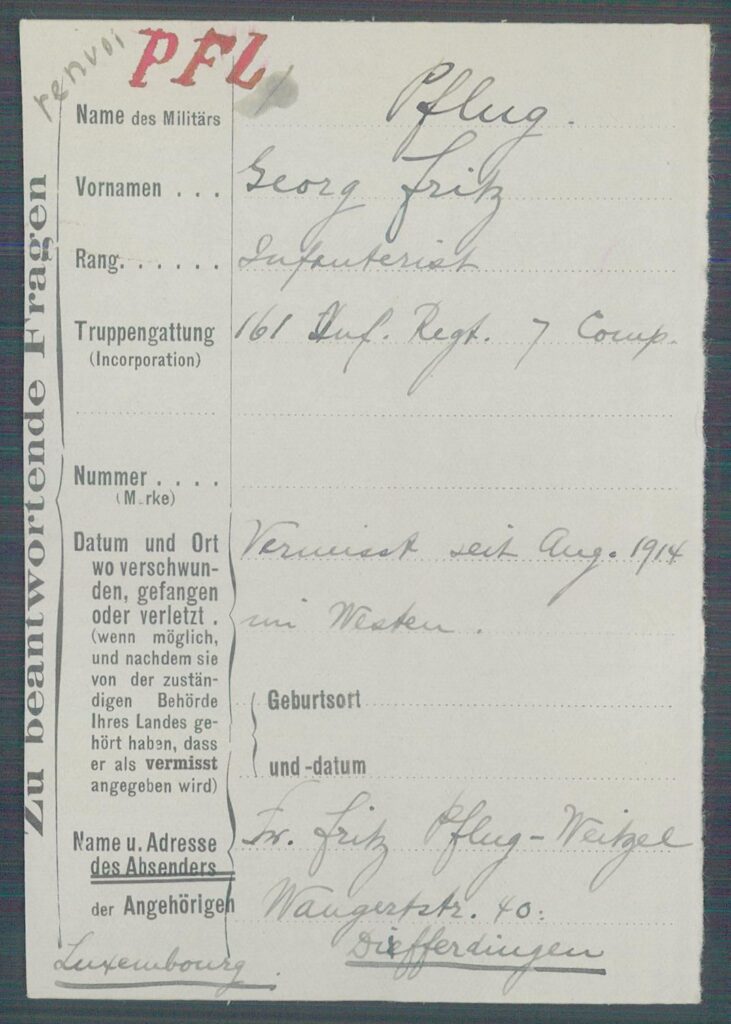 renvoi
PFL
Zu beantwortende Fragen
Name des Militärs Pflug.
Vornamen . . . Georg Fritz
Rang. . . . . . Infanterist
Truppengattung 161 Inf. Regt. 7 Comp.
(Incorporation)
Nummer . . . .
(M rke)
Datum und Ort Vermisst seit Aug. 1914
wo verschwun-
den, gefangen
oder verletzt . im Westen.
(wenn möglich,
und nachdem sie
von der zustän-
digen Behörde Geburtsort
Ihres Landes ge-
hört haben, dass
er als vermisst und -datum
angegeben wird)
Name u. Adresse Fr. Fritz Pflug-Weitzel
des Absenders
der Angehörigen Wangertstr. 40.
Luxembourg. Diefferdingen